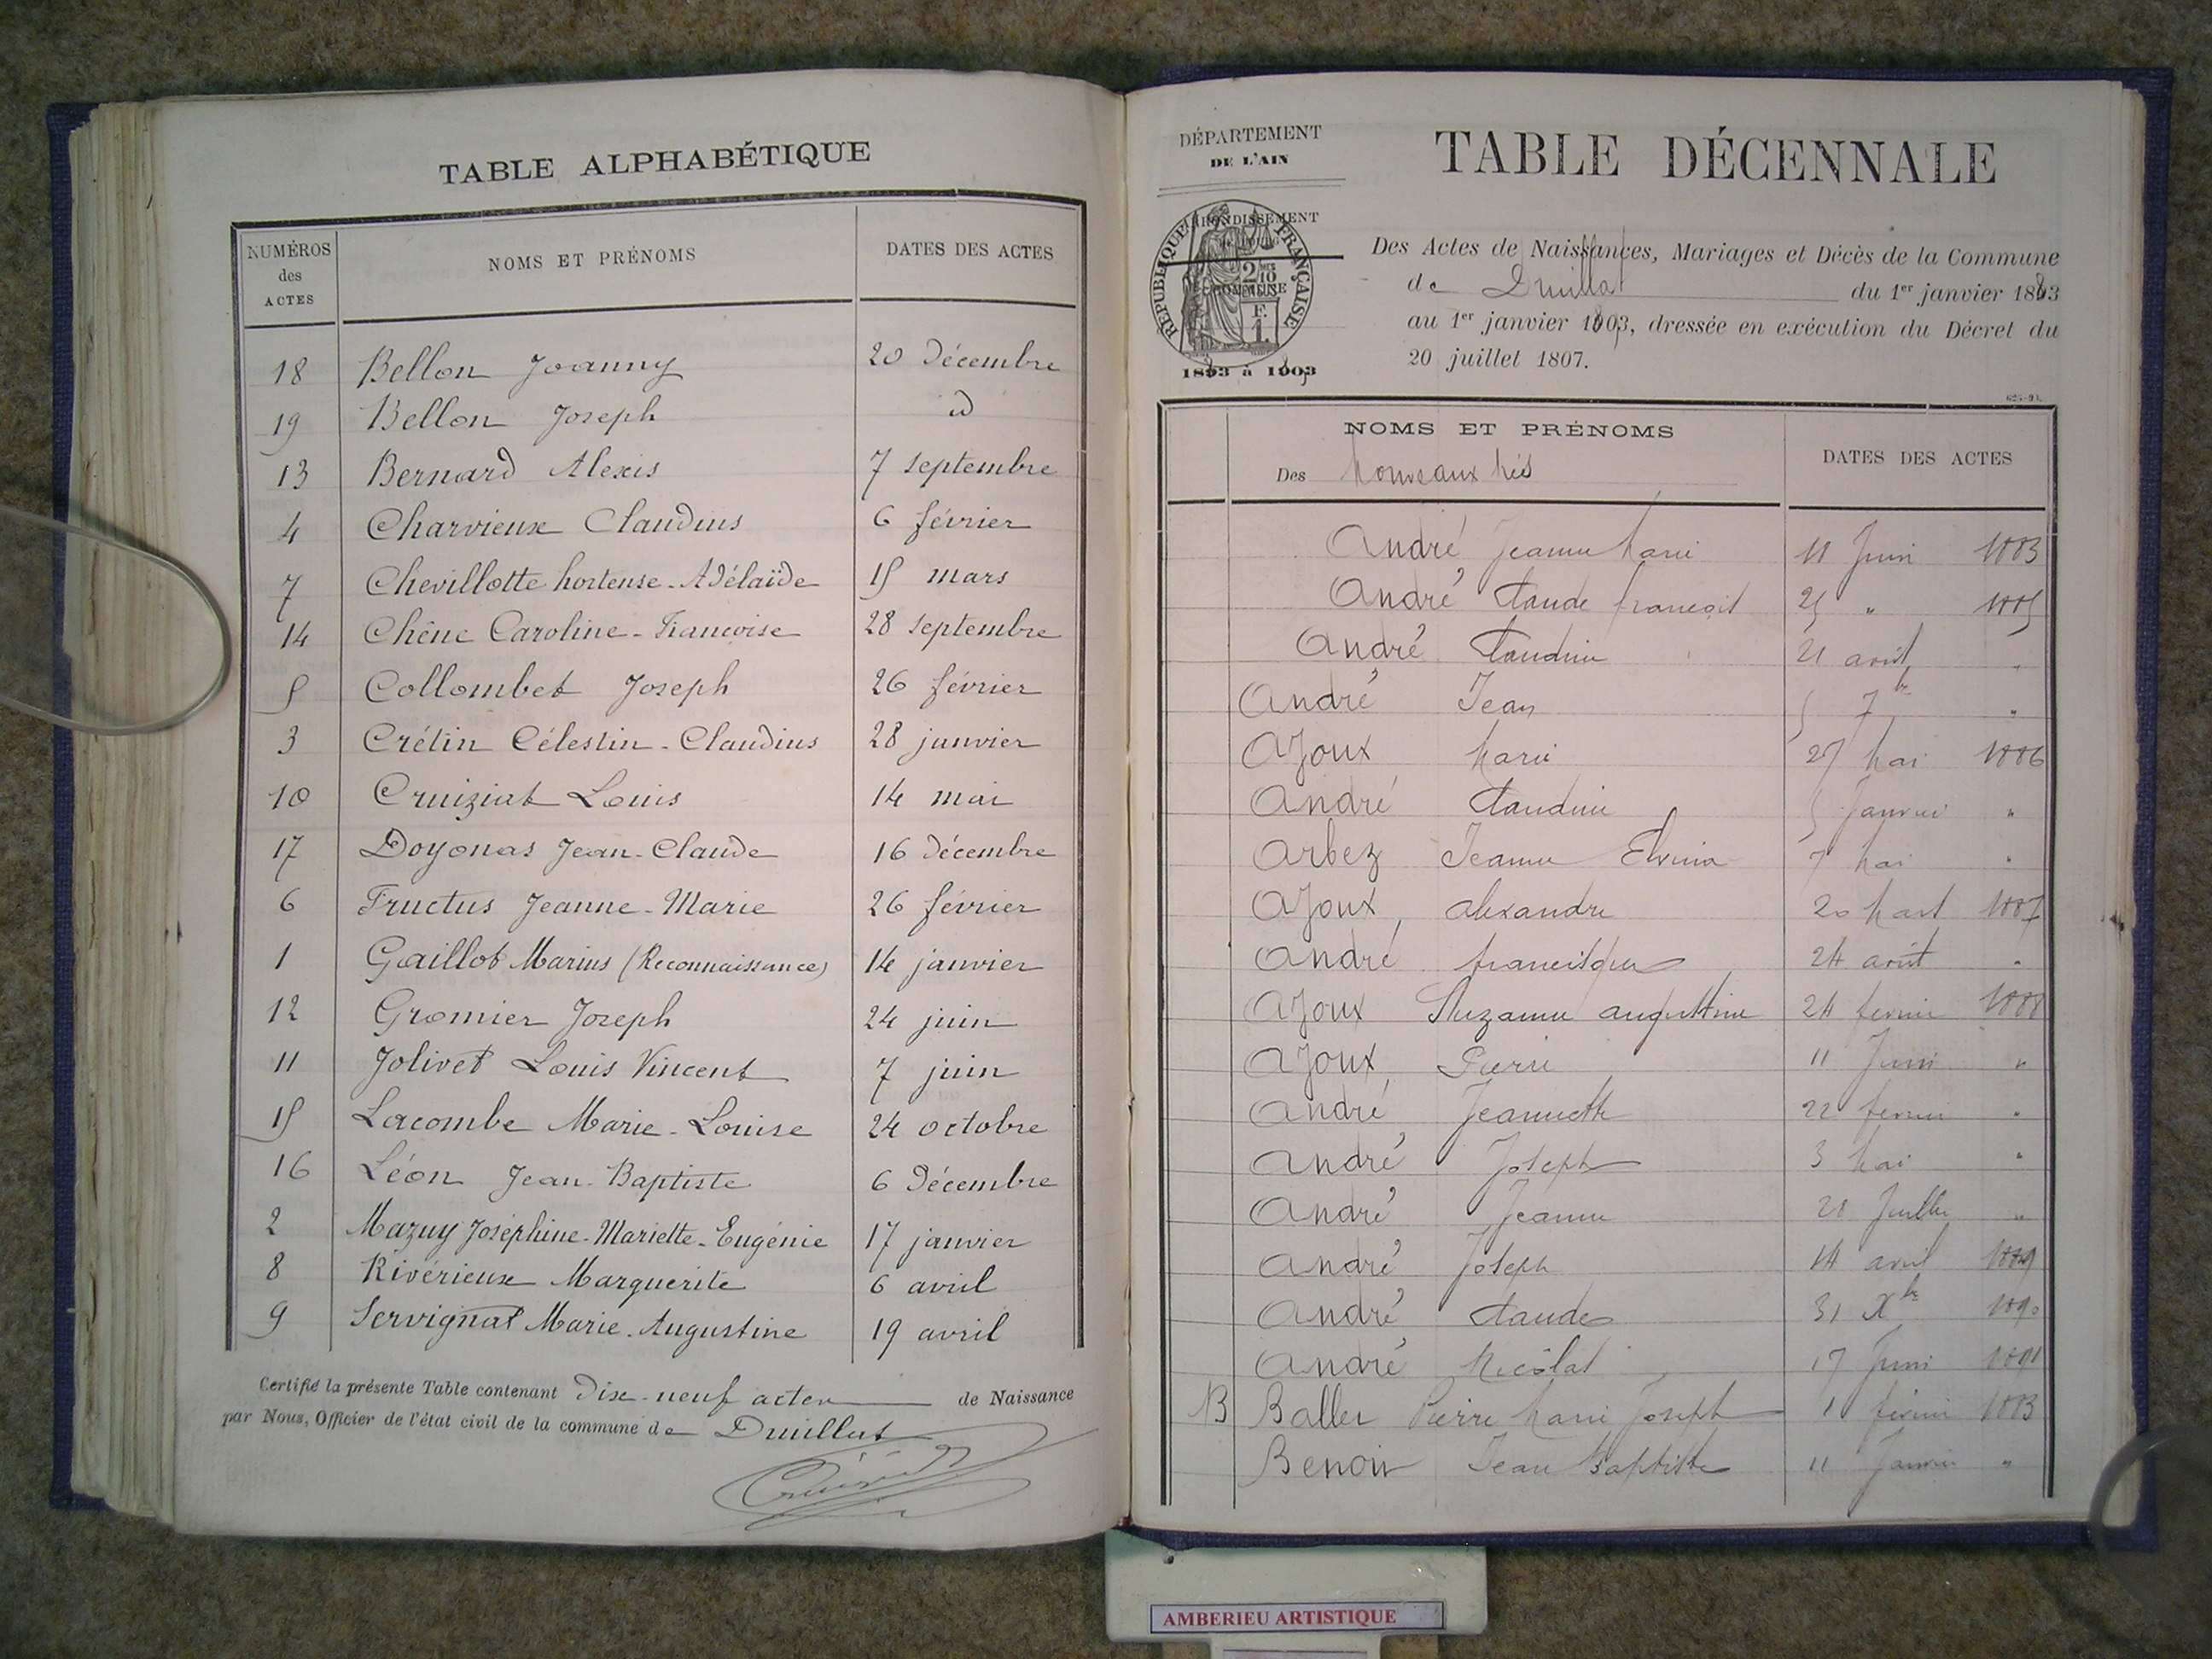 TABLE ALPHABÉTIQUE
NUMÉROS des ACTES NOMS ET PRÉNOMS DATES DES ACTES
18 Bellon Joanny 20 Décembre
19 Bellon Joseph id
13 Bernard Alexis 7 septembre
4 Charvieux Claudius 6 février
7 Chevillotte hortense-Adélaïde 15 mars
14 Chêne Caroline-Françoise 28 septembre
5 Collombet Joseph 26 février
3 Crétin Célestin-Claudius 28 janvier
10 Cruiziat Louis 14 mai
17 Doyonas Jean-Claude 16 Décembre
6 Fructus Jeanne-Marie 26 février
1 Gaillot Marius (Reconnaissance) 14 janvier
12 Gromier Joseph 24 juin
11 Jolivet Louis Vincent 7 juin
15 Lacombe Marie-Louise 24 octobre
16 Léon Jean-Baptiste 6 Décembre
2 Mazuy Joséphine-Mariette-Eugénie 17 janvier
8 Rivérieux Marguerite 6 avril
9 Servignat Marie-Augustine 19 avril
Certifié la présente Table contenant Dix-neuf actes de Naissance
par Nous, Officier de l'état civil de la commune de Druillat
DÉPARTEMENT
DE L'AIN
ARRONDISSEMENT
COMMUNE
RÉPUBLIQUE FRANÇAISE
1883 à 1893
TABLE DÉCENNALE
Des Actes de Naissances, Mariages et Décès de la Commune
de Druillat du 1er janvier 1883
au 1er janvier 1893, dressée en exécution du Décret du
20 juillet 1807.
NOMS ET PRÉNOMS DATES DES ACTES
Des Nouveaux nés
André Jeanne Marie 11 Juin 1883
André Claude françois 25 " 1885
André Claudine 21 avril "
André Jean 5 7bre "
Ajoux Marie 27 Mai 1886
André Claudine 5 Janvier "
Arbez Jeanne Elvina 7 Mai "
Ajoux, alexandre 20 Mars 1887
André francisque 24 août "
Ajoux Suzanne augustine 24 fevrier 1888
Ajoux Pierre 11 Juin "
André Jeannette 22 fevrier "
André Joseph 3 Mai "
André Jeanne 28 Juillet "
André Joseph 14 avril 1889
André Claude 31 Xbre 1890
André Nicolas 17 Juin 1891
B Ballet Pierre Marie Joseph 1 février 1883
Benoit Jean Baptiste 11 Janvier "
AMBERIEU ARTISTIQUE